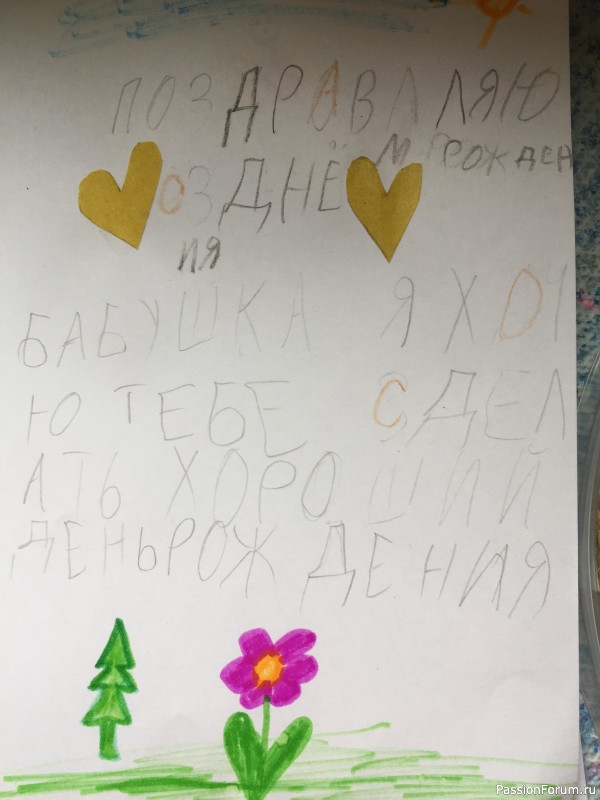 ПОЗДРАВЛЛЯЮ
СЗ ДНЁМ РОЖДЕН
ИЯ
БАБУШКА Я ХОЧ
Ю ТЕБЕ СДЕЛ
АТЬ ХОРОШИЙ
ДЕНЬРОЖДЕНИЯ
PassionForum.ru